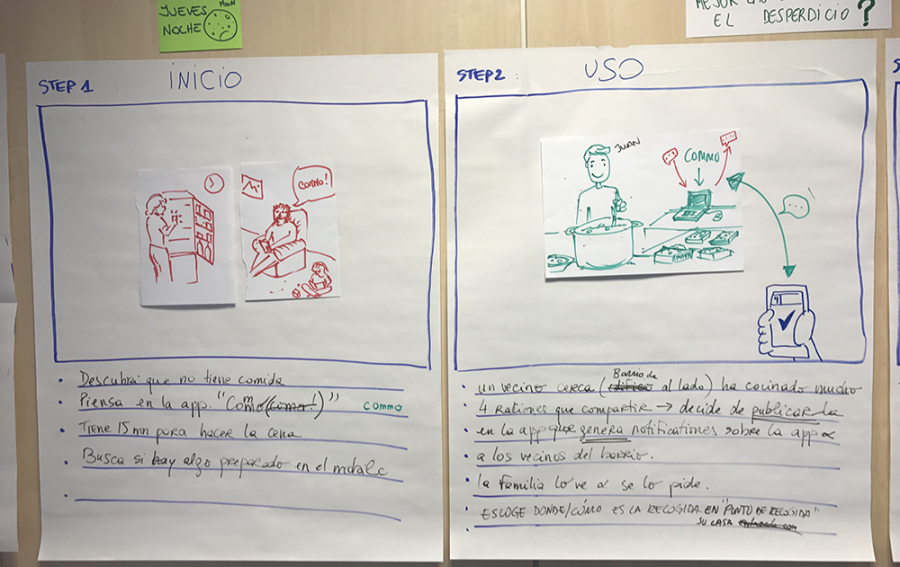 JUEVES
NOCHE
EL DESPERDICIO?
STEP 1 :
INICIO
COMMO!
Descubrir que no tiene comida
Piensa en la app. "Commo (como!)"
COMMO
Tiene 15 mn para hacer la cena
Busca si hay algo preparado en el
STEP 2 :
USO
JUAN
COMMO
4
Barrio de
un vecino cerca (edificio al lado) ha cocinado mucho
4 Rationes que compartir → decide de publicar la
en la app que genera notificationes sobre la app
a los vecinos del barrio.
la Familia lo ve se lo pide.
ESCOGE DONDE/CÓMO ES LA RECOGIDA EN "PUNTO DE RECOGIDA"
SU CASA
S